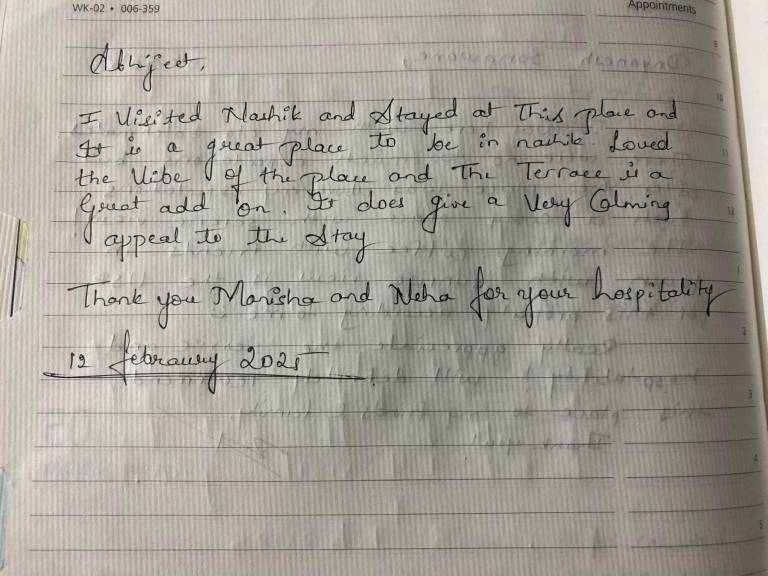 WK-02 • 006-359
Appointments
Abhijeet,
I Visited Nashik and Stayed at This place and
It is a great place to be in nashik. Loved
the Vibe of the place and The Terrace is a
Great add on. It does give a Very Calming
appeal to the Stay
Thank you Manisha and Neha for your hospitality
12 febraury 2025
9
10
11
12
1
2
3
4
5